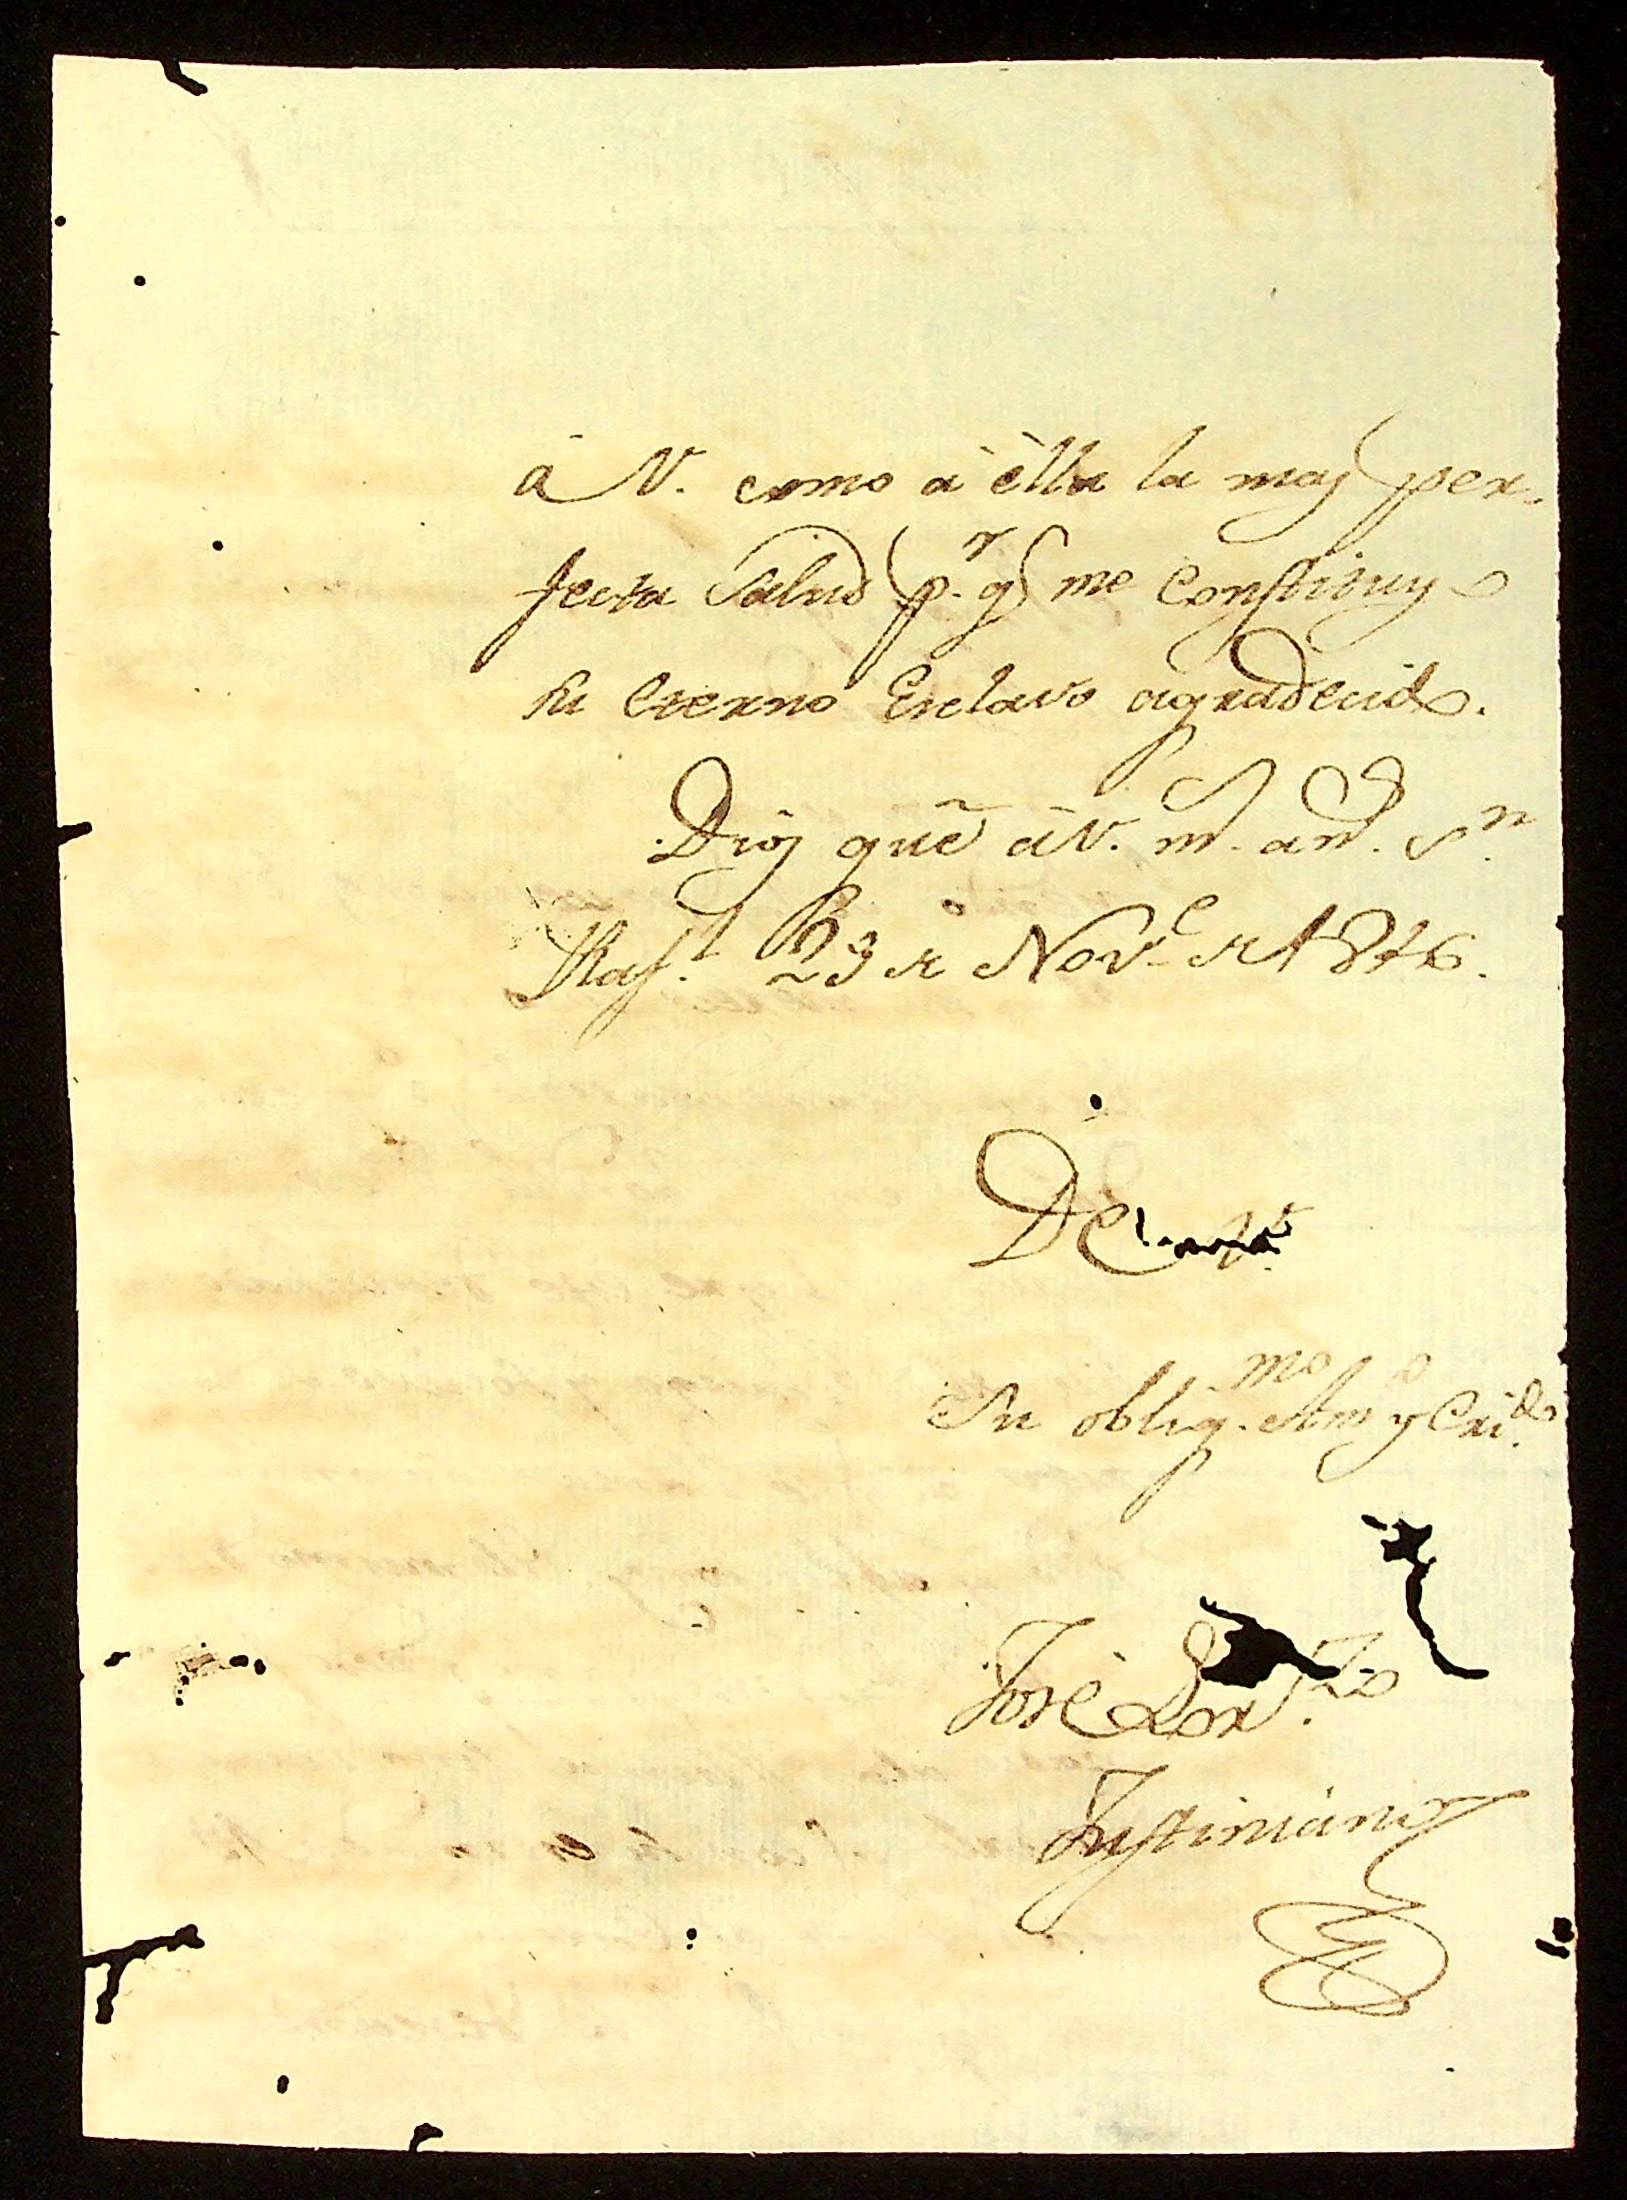 á V. como á élla la mas per-
fecta Salud p.r q.e me Constituyo
su eterno Esclavo agradecido.
Dios gue á V. m. an.s S.n
Raf.l 23 de Nov.e de 1816.
De V.
Su oblig.mo Am.o y Cri.do
José Lor.zo
Justiniano